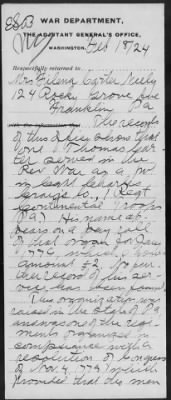 8803
WAR DEPARTMENT,
THE ADJUTANT GENERAL'S OFFICE,
WASHINGTON, Feb 18/24
Respectfully returned to
Mrs Eilena Carter Neely
124 Rocky Grove Ave
Franklin Pa
with the information that The records
of this office show that
one Thomas Car-
ter served in the
Rev War as a
in Capt
Co., 1 Regt
Continental Troops
(Pa) His name ap-
pears on a pay roll
of that organ for Jan
1776
amount £2. No fur-
ther record of his ser-
vice has been found
This organization was
raised in the State of Pa
and was one of the regi-
ments organized in
compliance with a
resolution of Congress
of Nov 4, 1775 which
provided that the men